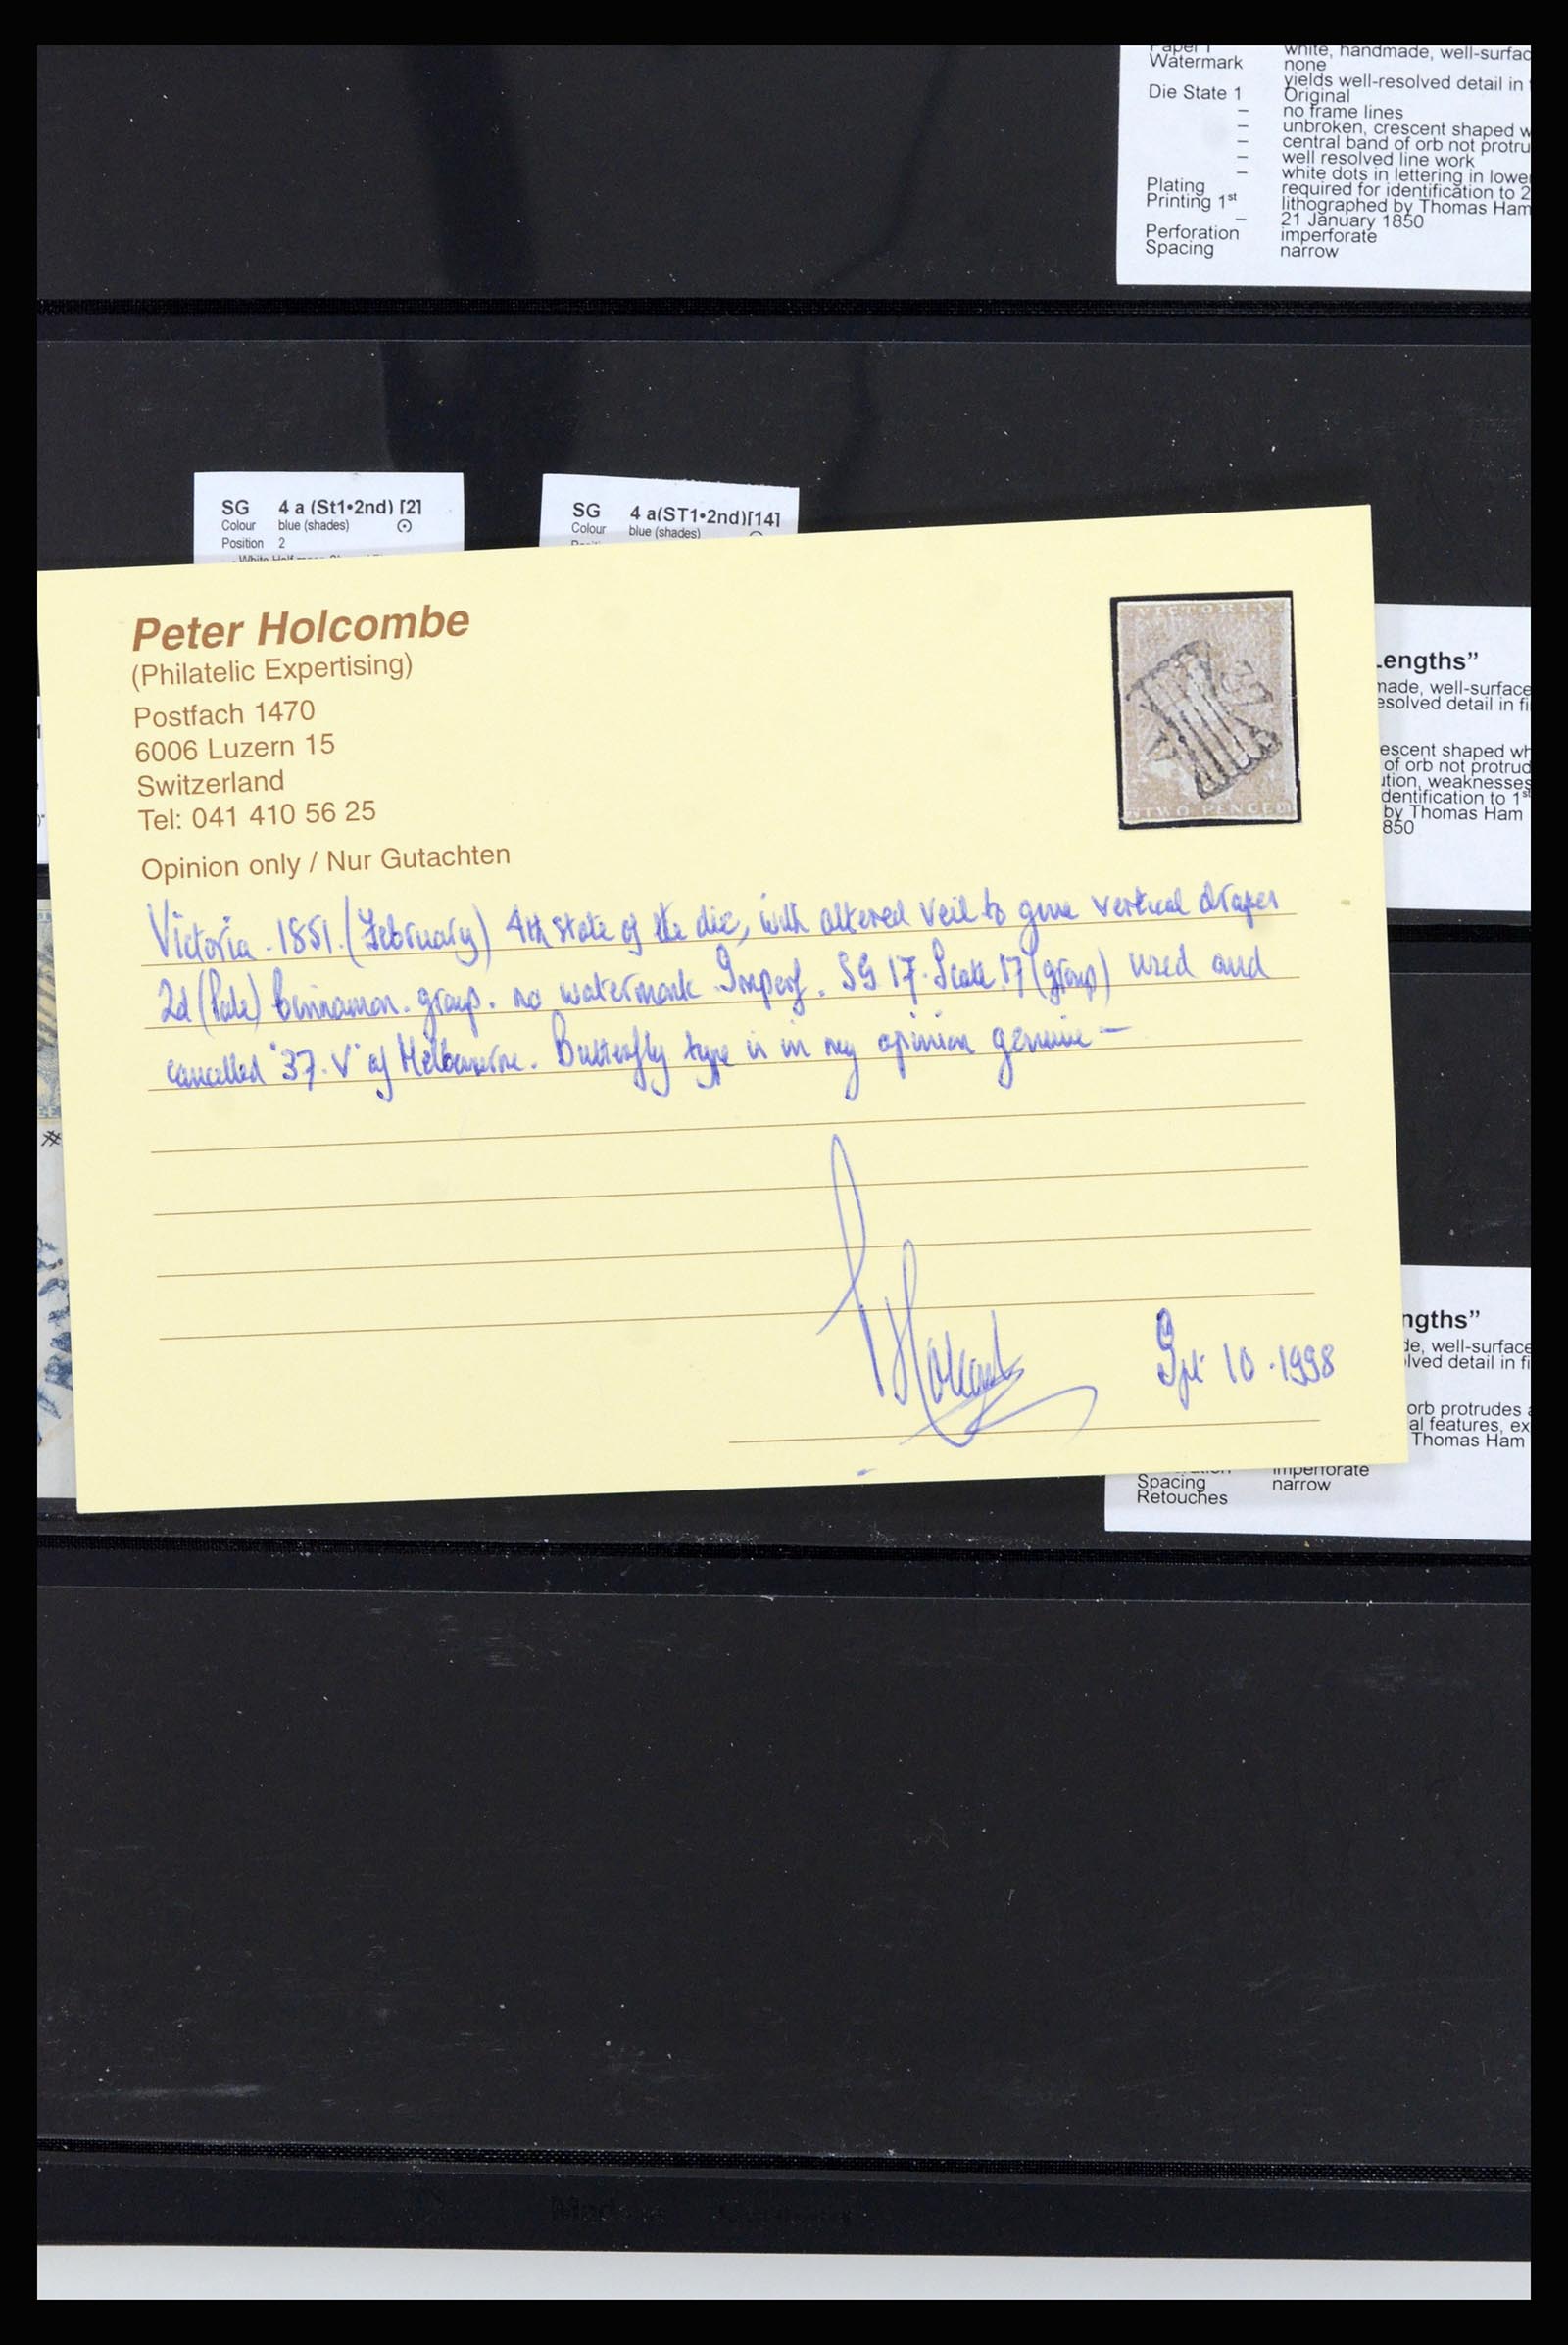 Watermark none
white, handmade, well-surfac
yields well-resolved detail in
Die State 1 Original
– no frame lines
– unbroken, crescent shaped w
– central band of orb not protru
– well resolved line work
– white dots in lettering in lowe
Plating required for identification to 2
Printing 1st lithographed by Thomas Ham
– 21 January 1850
Perforation imperforate
Spacing narrow
SG 4 a (St1•2nd) [2]
Colour blue (shades)
Position 2
SG 4 a(ST1•2nd)[14]
Colour blue (shades)
Peter Holcombe
(Philatelic Expertising)
Postfach 1470
6006 Luzern 15
Switzerland
Tel: 041 410 56 25
Opinion only / Nur Gutachten
VICTORIA
37
V
TWO PENCE
Victoria. 1851. (February) 4th state of the die, with altered veil to give vertical drapes
2d (Pale) Cinnamon. group. no watermark. Imperf. SG 17. Scott. 17 (group) used and
cancelled "37. V" of Melbourne. Butterfly type is in my opinion genuine —
10.1998
engths”
made, well-surface
esolved detail in fi
escent shaped wh
of orb not protrud
ution, weaknesses
dentification to 1st
by Thomas Ham
850
ngths”
de, well-surface
lved detail in fi
orb protrudes
al features, ex
Thomas Ham
imperforate
Spacing narrow
Retouches